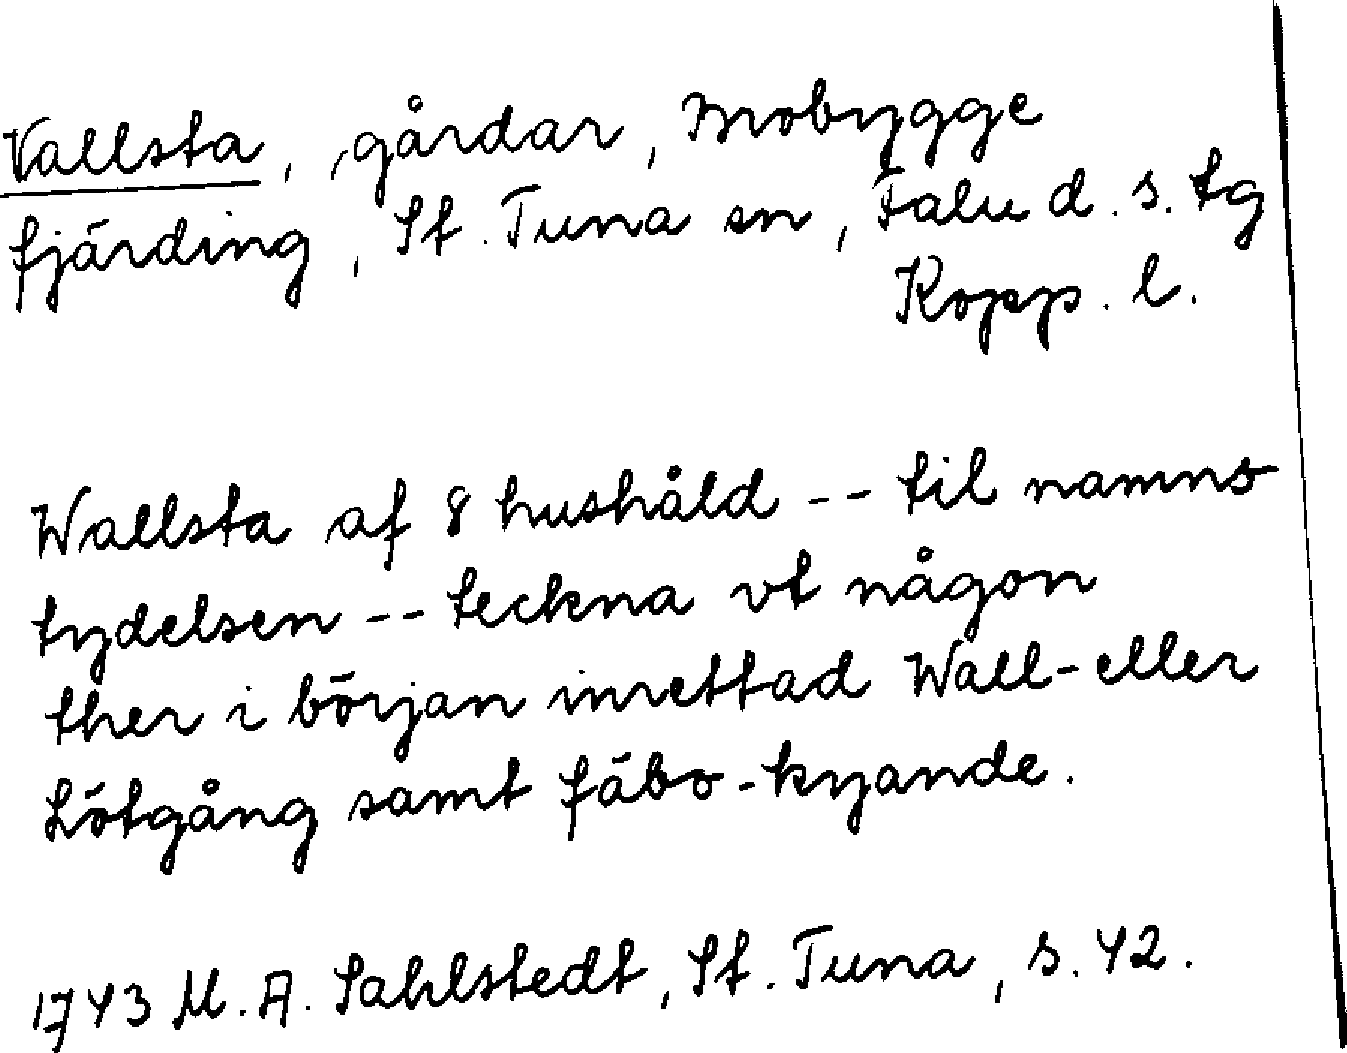 Vallsta, gårdar, Mobygge
fjärding, St. Tuna sn, Falu d. s. tg
Kopp. l.
Wallsta af 8 hushåld -- til namns
tydelsen -- teckna vt någon
ther i början inrettad Wall- eller
Lötgång samt fäbo-kyande.
1743 M. A. Sahlstedt, St. Tuna, s. 42.